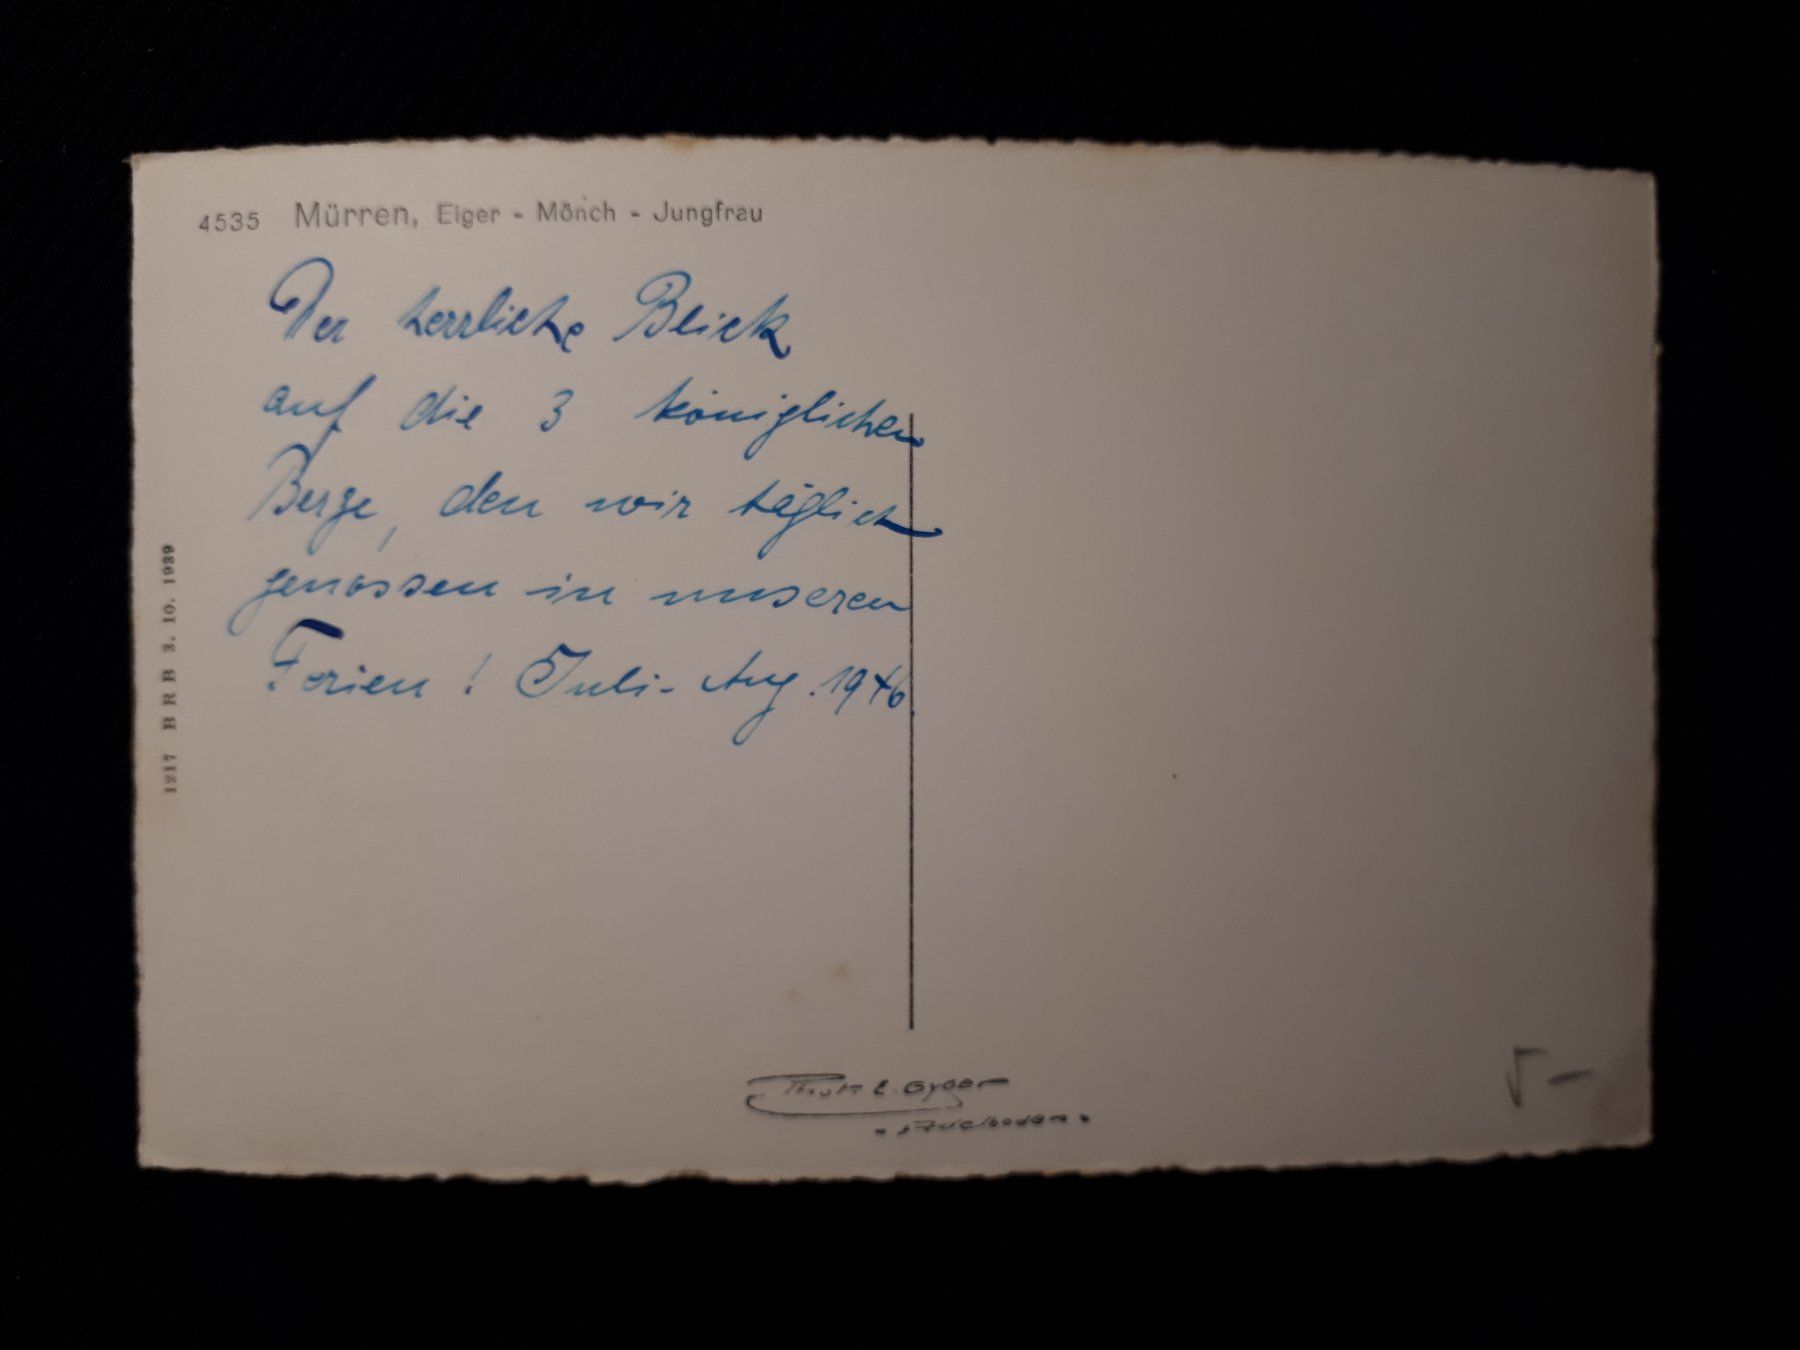 4535 Mürren, Eiger - Mönch - Jungfrau
Der herrliche Blick
auf die 3 königlichen
Berge, den wir täglich
genossen in unseren
Ferien ! Juli - Aug. 1946
1217 BRB 3. 10. 1939
Phot. E. Gyger
- Adelboden -
5 -